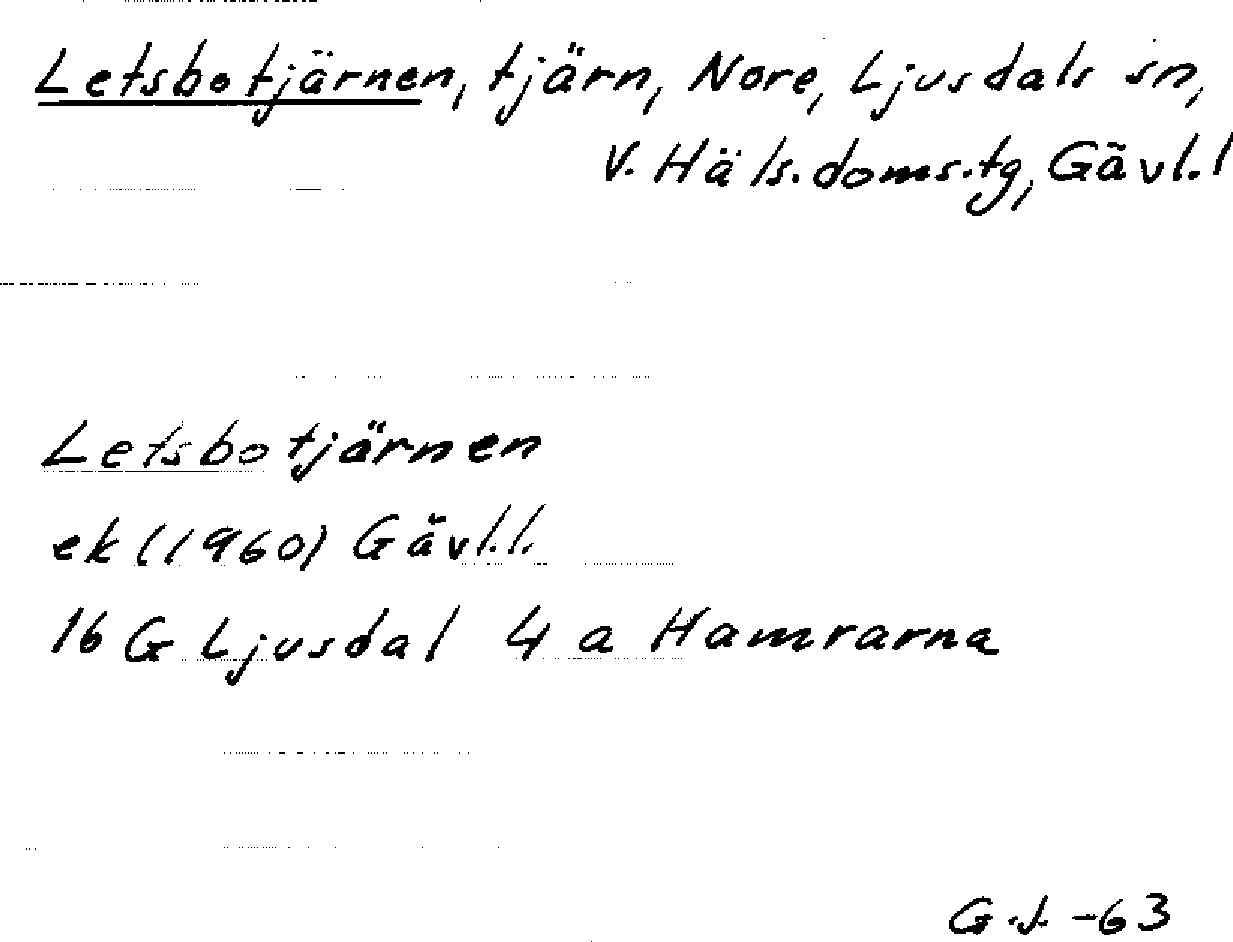 Letsbotjärnen, tjärn, Nore, Ljusdals sn,
V. Häls.doms.tg, Gävl.l
Letsbotjärnen
ek (1960) Gävl.l.
16 G Ljusdal 4 a Hamrarna
G.J. -63